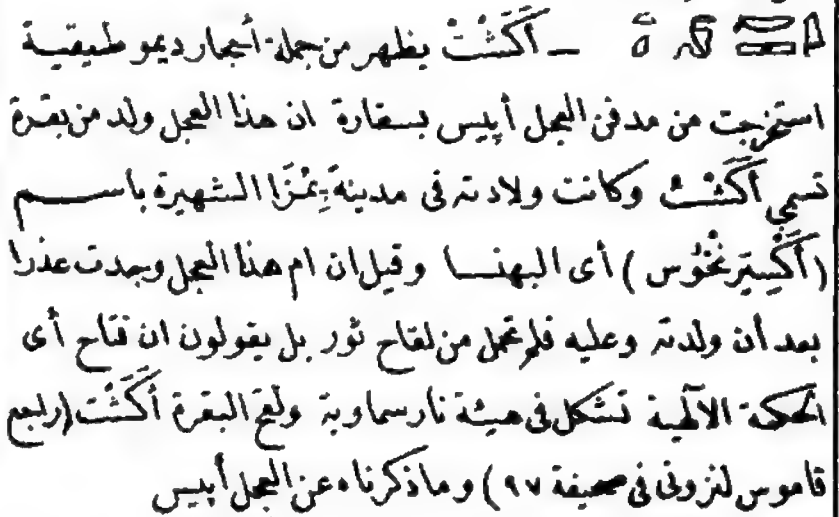 ـ أَكَشْتْ يظهر من جملة أحجار ديموطيقية
استخرجت من مدفن العجل أپيس بسقارة ان هذا العجل ولد من بقرة
تسمي أَكَشْتْ وكانت ولادته فى مدينة پِمْزَا الشهيرة باسم
(أَكْسِيْرِنْخُوس) أى البهنسا وقيل ان ام هذا العجل وجدت عذرا
بعد أن ولدته وعليه فلم تحمل من لقاح ثور بل يقولون ان فتاح أى
الحكمة الآلهية تشكل فى هيئة نار سماوية ولقح البقرة أَكَشْت (راجع
قاموس لنزونى فى صحيفة ٩٧) وما ذكرناه عن العجل أپيس